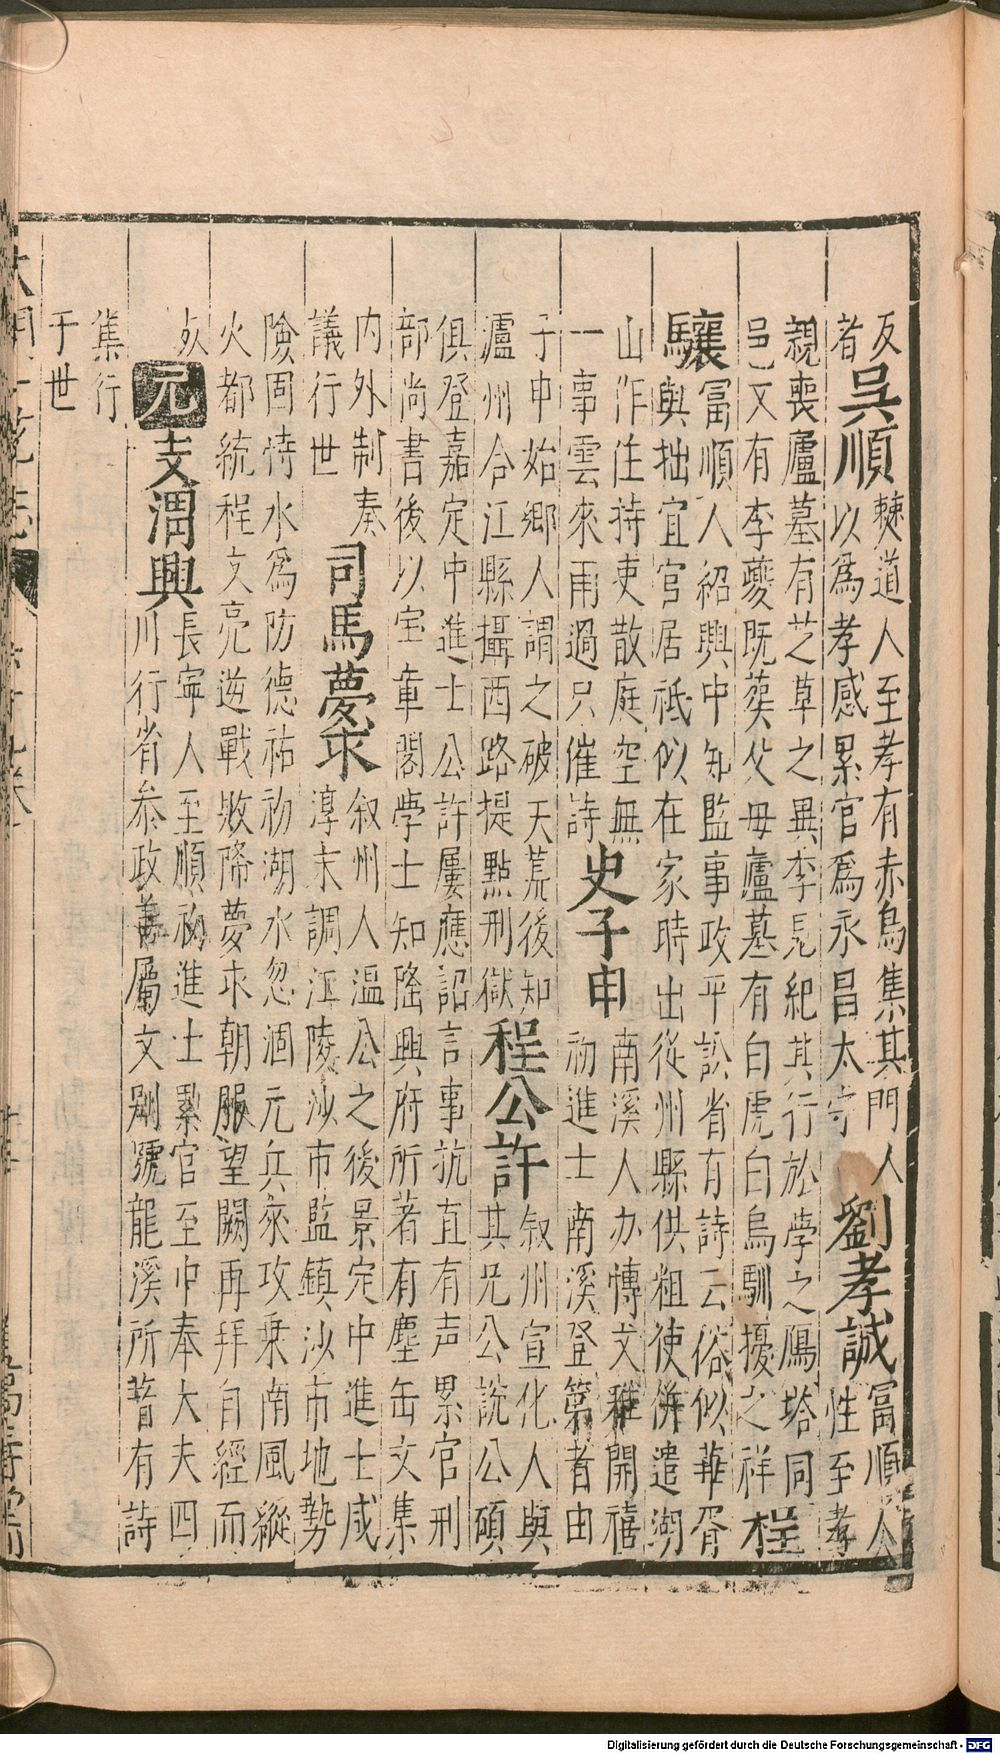 反
者吳順僰道人至孝有赤烏集其門人
以為孝感累官為永昌太守劉孝誠富順人
性至孝
親喪廬墓有芝草之異李見紀其行於學之鴈塔同
邑又有李夔既葬父母廬墓有白虎白烏馴擾之祥程
驤富順人紹興中知監事政平訟省有詩云俗似華胥
與拙宜官居祗似在家時出從州縣供粗使併遣湖
山作住持吏散庭空無
一事雲來雨過只催詩史子申南溪人办慱文稚開禧
初進士南溪登第者由
子申始鄉人謂之破天荒後知
瀘州合江縣攝西路提點刑獄程公許叙州宣化人與
其兄公說公碩
俱登嘉定中進士公許屢應詔言事抗直有声累官刑
部尚書後以宝章閣學士知隆興府所著有塵缶文集
内外制奏
議行世司馬夢求叙州人溫公之後景定中進士咸
淳末調江陵沙市監鎮沙市地勢
險固恃水為防德祐初湖水忽涸元兵來攻乗南風縱
火都統程文亮逆戰敗降夢求朝服望闕再拜自經而
元支渭興長寧人至順初進士累官至中奉大夫四
川行省叅政善屬文別號龍溪所著有詩
集行
于世
Digitalisierung gefördert durch die Deutsche Forschungsgemeinschaft - DFG